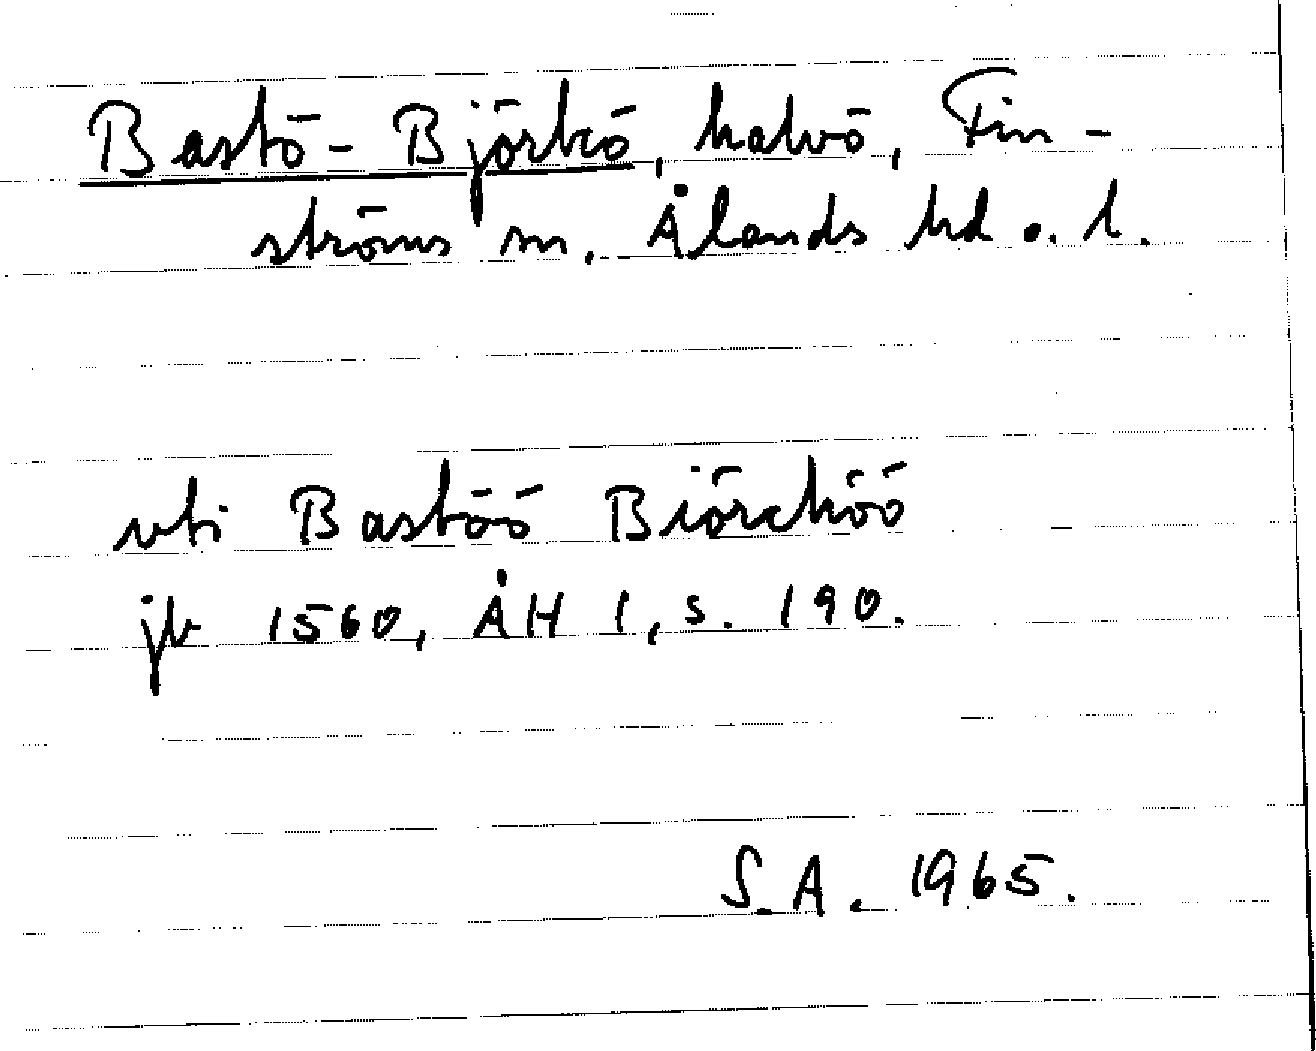 Bastö-Björkö, halvö, Fin-
ströms sn, Ålands hd o. l.
vti Bastöö Biörcköö
jb 1560, ÅH 1, s. 190.
S.A. 1965.